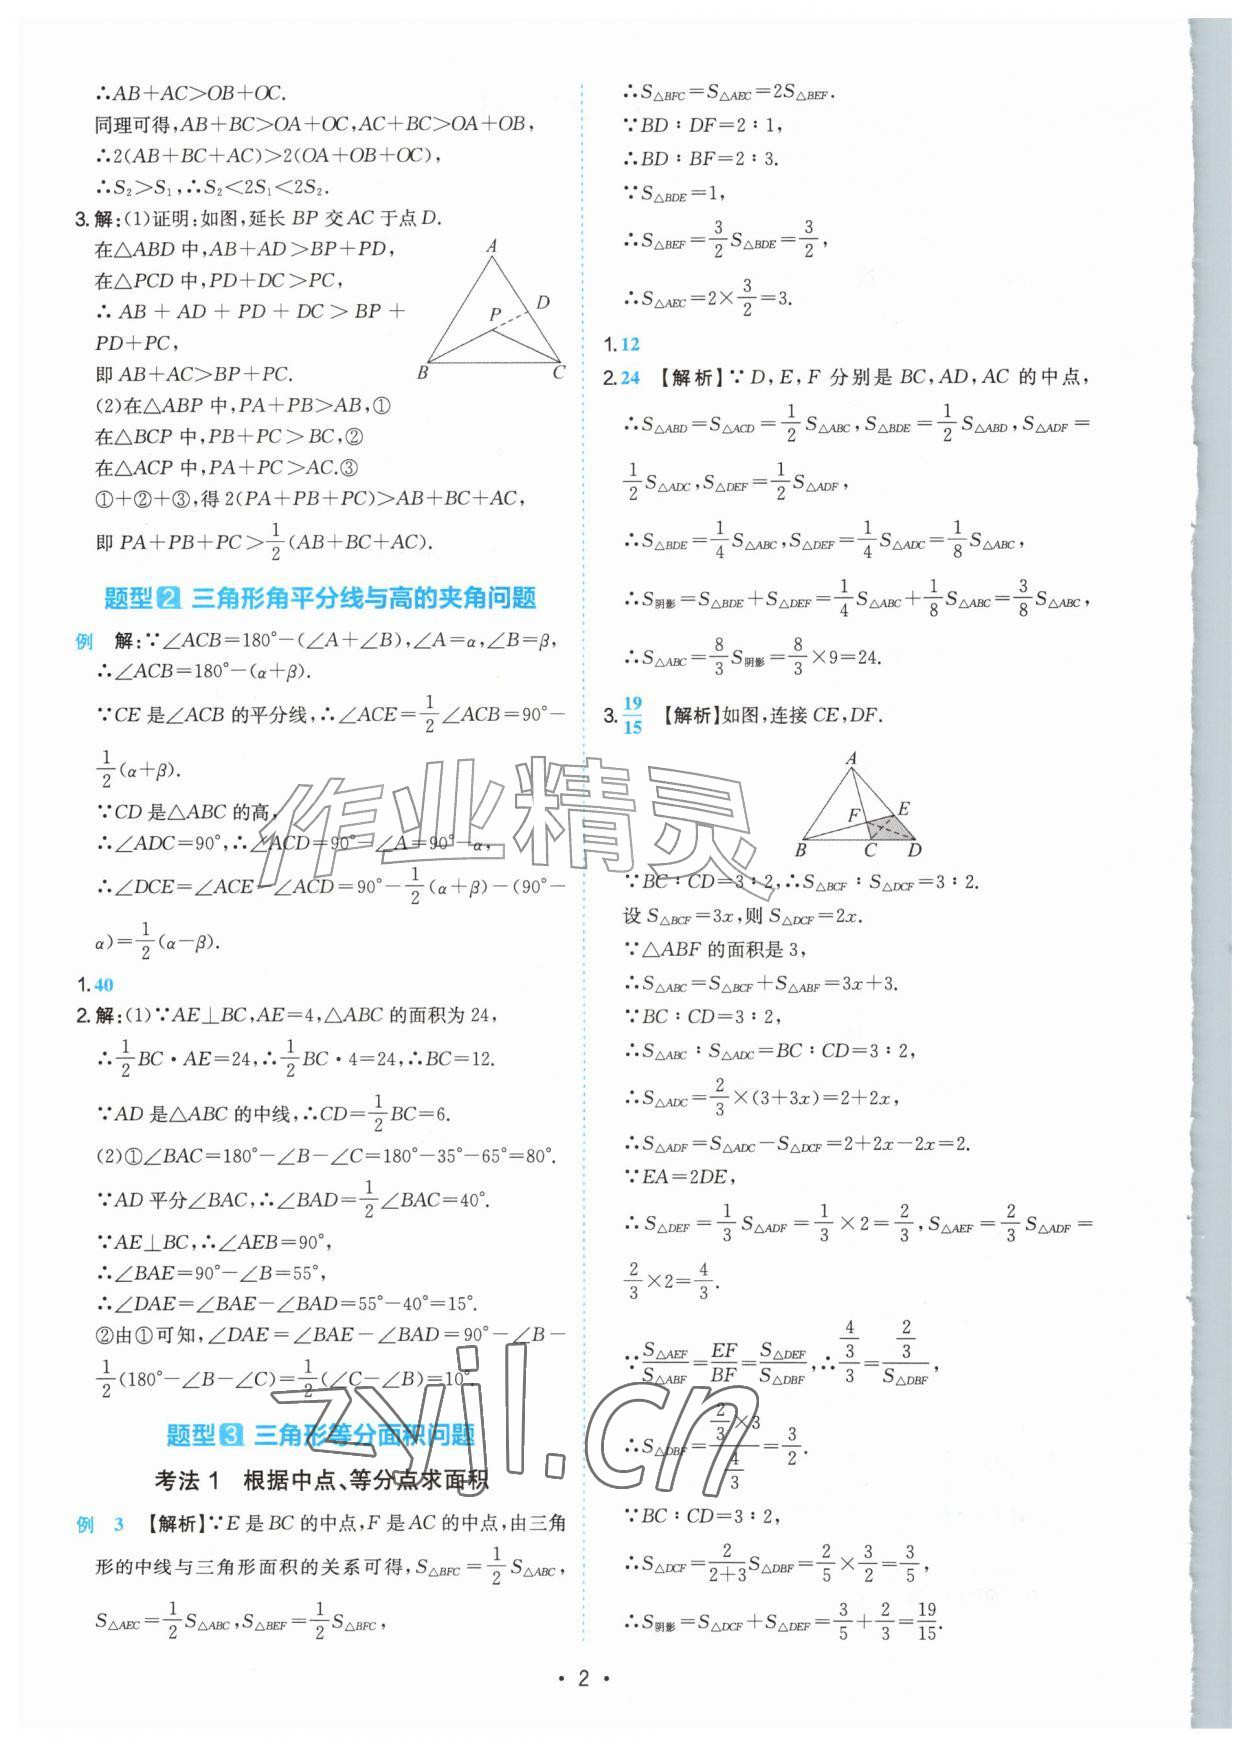 ∴AB+AC>OB+OC.
同理可得,AB+BC>OA+OC,AC+BC>OA+OB,
∴2(AB+BC+AC)>2(OA+OB+OC),
∴S₂>S₁,∴S₂<2S₁<2S₂.
3.解:(1)证明:如图,延长 BP 交 AC 于点 D.
在△ABD 中,AB+AD>BP+PD,
在△PCD 中,PD+DC>PC,
∴ AB + AD + PD + DC > BP +
PD+PC,
即 AB+AC>BP+PC.
A
P
D
B
C
(2)在△ABP 中,PA+PB>AB,①
在△BCP 中,PB+PC>BC,②
在△ACP 中,PA+PC>AC.③
①+②+③,得 2(PA+PB+PC)>AB+BC+AC,
即 PA+PB+PC>1/2(AB+BC+AC).
题型2 三角形角平分线与高的夹角问题
例 解:∵∠ACB=180°-(∠A+∠B),∠A=α,∠B=β,
∴∠ACB=180°-(α+β).
∵CE 是∠ACB 的平分线,∴∠ACE=1/2∠ACB=90°-
1/2(α+β).
∵CD 是△ABC 的高,
∴∠ADC=90°,∴∠ACD=90°-∠A=90°-α,
∴∠DCE=∠ACE-∠ACD=90°-1/2(α+β)-(90°-
α)=1/2(α-β).
1.40
2.解:(1)∵AE⊥BC,AE=4,△ABC 的面积为 24,
∴1/2BC·AE=24,∴1/2BC·4=24,∴BC=12.
∵AD 是△ABC 的中线,∴CD=1/2BC=6.
(2)①∠BAC=180°-∠B-∠C=180°-35°-65°=80°.
∵AD 平分∠BAC,∴∠BAD=1/2∠BAC=40°.
∵AE⊥BC,∴∠AEB=90°,
∴∠BAE=90°-∠B=55°,
∴∠DAE=∠BAE-∠BAD=55°-40°=15°.
②由①可知,∠DAE=∠BAE-∠BAD=90°-∠B-
1/2(180°-∠B-∠C)=1/2(∠C-∠B)=10°.
题型3 三角形等分面积问题
考法 1 根据中点、等分点求面积
例 3 【解析】∵E 是 BC 的中点,F 是 AC 的中点,由三角
形的中线与三角形面积的关系可得,S△BFC=1/2S△ABC,
S△AEC=1/2S△ABC,S△BEF=1/2S△BFC,
∴S△BFC=S△AEC=2S△BEF.
∵BD∶DF=2∶1,
∴BD∶BF=2∶3.
∵S△BDE=1,
∴S△BEF=3/2S△BDE=3/2,
∴S△AEC=2×3/2=3.
1.12
2.24 【解析】∵D,E,F 分别是 BC,AD,AC 的中点,
∴S△ABD=S△ACD=1/2S△ABC,S△BDE=1/2S△ABD,S△ADF=
1/2S△ADC,S△DEF=1/2S△ADF,
∴S△BDE=1/4S△ABC,S△DEF=1/4S△ADC=1/8S△ABC,
∴S阴影=S△BDE+S△DEF=1/4S△ABC+1/8S△ABC=3/8S△ABC,
∴S△ABC=8/3S阴影=8/3×9=24.
3.19/15 【解析】如图,连接 CE,DF.
A
F
E
B
C
D
∵BC∶CD=3∶2,∴S△BCF∶S△DCF=3∶2.
设 S△BCF=3x,则 S△DCF=2x.
∵△ABF 的面积是 3,
∴S△ABC=S△BCF+S△ABF=3x+3.
∵BC∶CD=3∶2,
∴S△ABC∶S△ADC=BC∶CD=3∶2,
∴S△ADC=2/3×(3+3x)=2+2x,
∴S△ADF=S△ADC-S△DCF=2+2x-2x=2.
∵EA=2DE,
∴S△DEF=1/3S△ADF=1/3×2=2/3,S△AEF=2/3S△ADF=
2/3×2=4/3.
∵S△AEF/S△ABF=EF/BF=S△DEF/S△DBF,∴(4/3)/3=(2/3)/S△DBF,
∴S△DBF=(2/3×3)/(4/3)=3/2.
∵BC∶CD=3∶2,
∴S△DCF=2/(2+3)S△DBF=2/5×3/2=3/5,
∴S阴影=S△DCF+S△DEF=3/5+2/3=19/15.
作业精灵
zyjl.cn
• 2 •